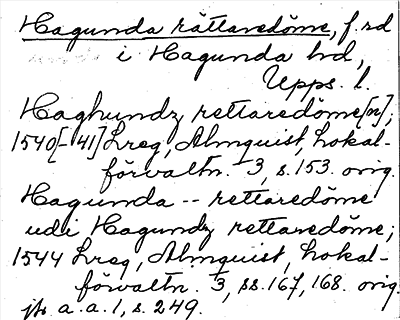 Hagunda rättaredöme, f. rd
i Hagunda hd,
Upps. l.
Haghundz rettaredöme[n];
1540[-41] Lreg, Almquist, Lokal-
förvaltn. 3, s. 153. orig.
Hagunda -- rettaredöme
udi Hagundz rettaredöme;
1544 Lreg, Almquist, Lokal-
förvaltn. 3, ss. 167, 168. orig.
jfr a. a. 1, s. 249.